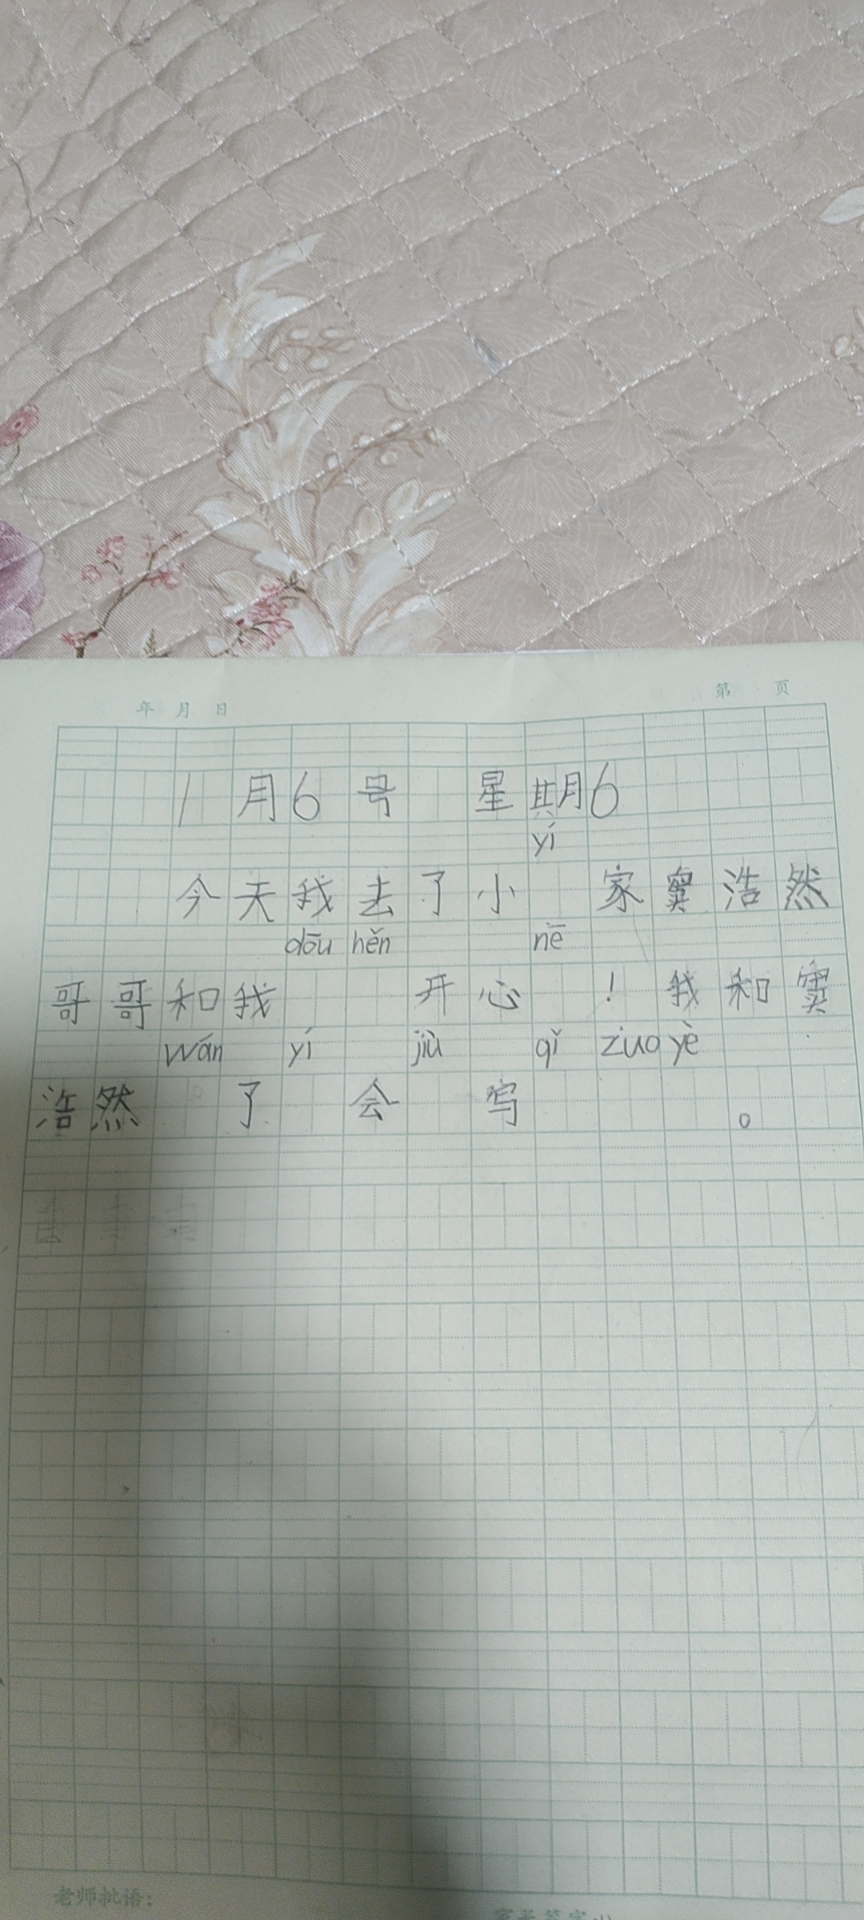 年 月 日
第 页
1月6号 星期6
yí
今天我去了小 家窦浩然
dōu hěn nē
哥哥和我 开心 ！我和窦
wán yí jiù qǐ zuo yè
浩然 了 会 写 。
老师批语：
家长签字